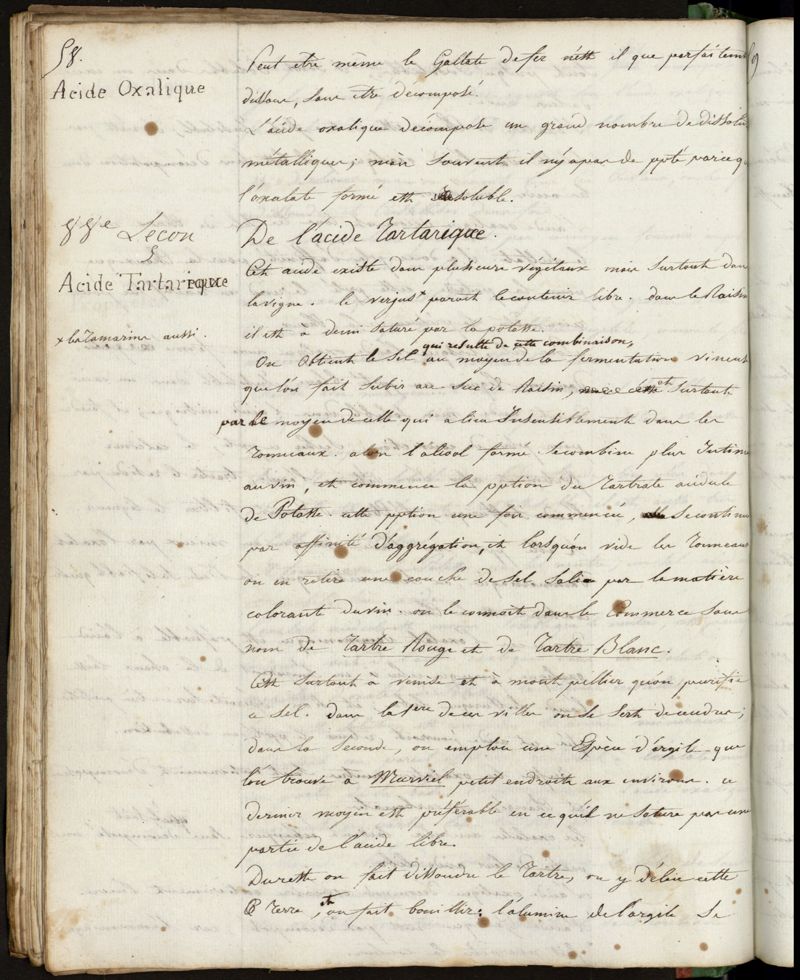 58.
Acide Oxalique
Peut etre même le Gallate de fer n'est il que parfaitem
dissous, sans etre decomposé.
L'acide oxalique décompose un grand nombre de dissolu
métalliques; mais souvent il n'y a pas de ppté parce q
l'oxalate formé est soluble.
88e Leçon
&
Acide Tartarique
De l'acide Tartarique.
Cet acide existe dans plusieurs végétaux mais surtout dan
la vigne. le verjus x paroit le contenir libre. dans le Raisin
x La Tamarine aussi.
il est à demi saturé par la potasse.
On obtient le sel qui resulte de cette combinaison, au moyen de la fermentation vineus
que l'on fait subir au Suc de Raisin, et surtout
par le moyen de celle qui a lieu Insensiblement dans les
Tonneaux. alors l'alcool formé se combine plus Intime
au vin, et commence la pption du Tartrate acidule
de Potasse. cette pption une fois commencée, se continu
par affinité d'aggrégation, et lorsqu'on vide les Tonneaux
on en retire une couche de sel sali par la matière
colorant du vin. on le connoit dans le Commerce sous
nom de Tartre Rouge et de Tartre Blanc.
C'est surtout à venise et à montpellier qu'on purifie
ce sel. dans la 1ere de ces villes on se sert de cendres;
dans la seconde, on emploie une Espèce d'argile que
l'on trouve à Murviel petit endroit aux environs. ce
dernier moyen est préférable en ce qu'il ne sature pas une
partie de l'acide libre.
Du reste on fait dissoudre le Tartre, on y délaie cette
Terre, et on fait bouillir: l'alumine de l'argile se